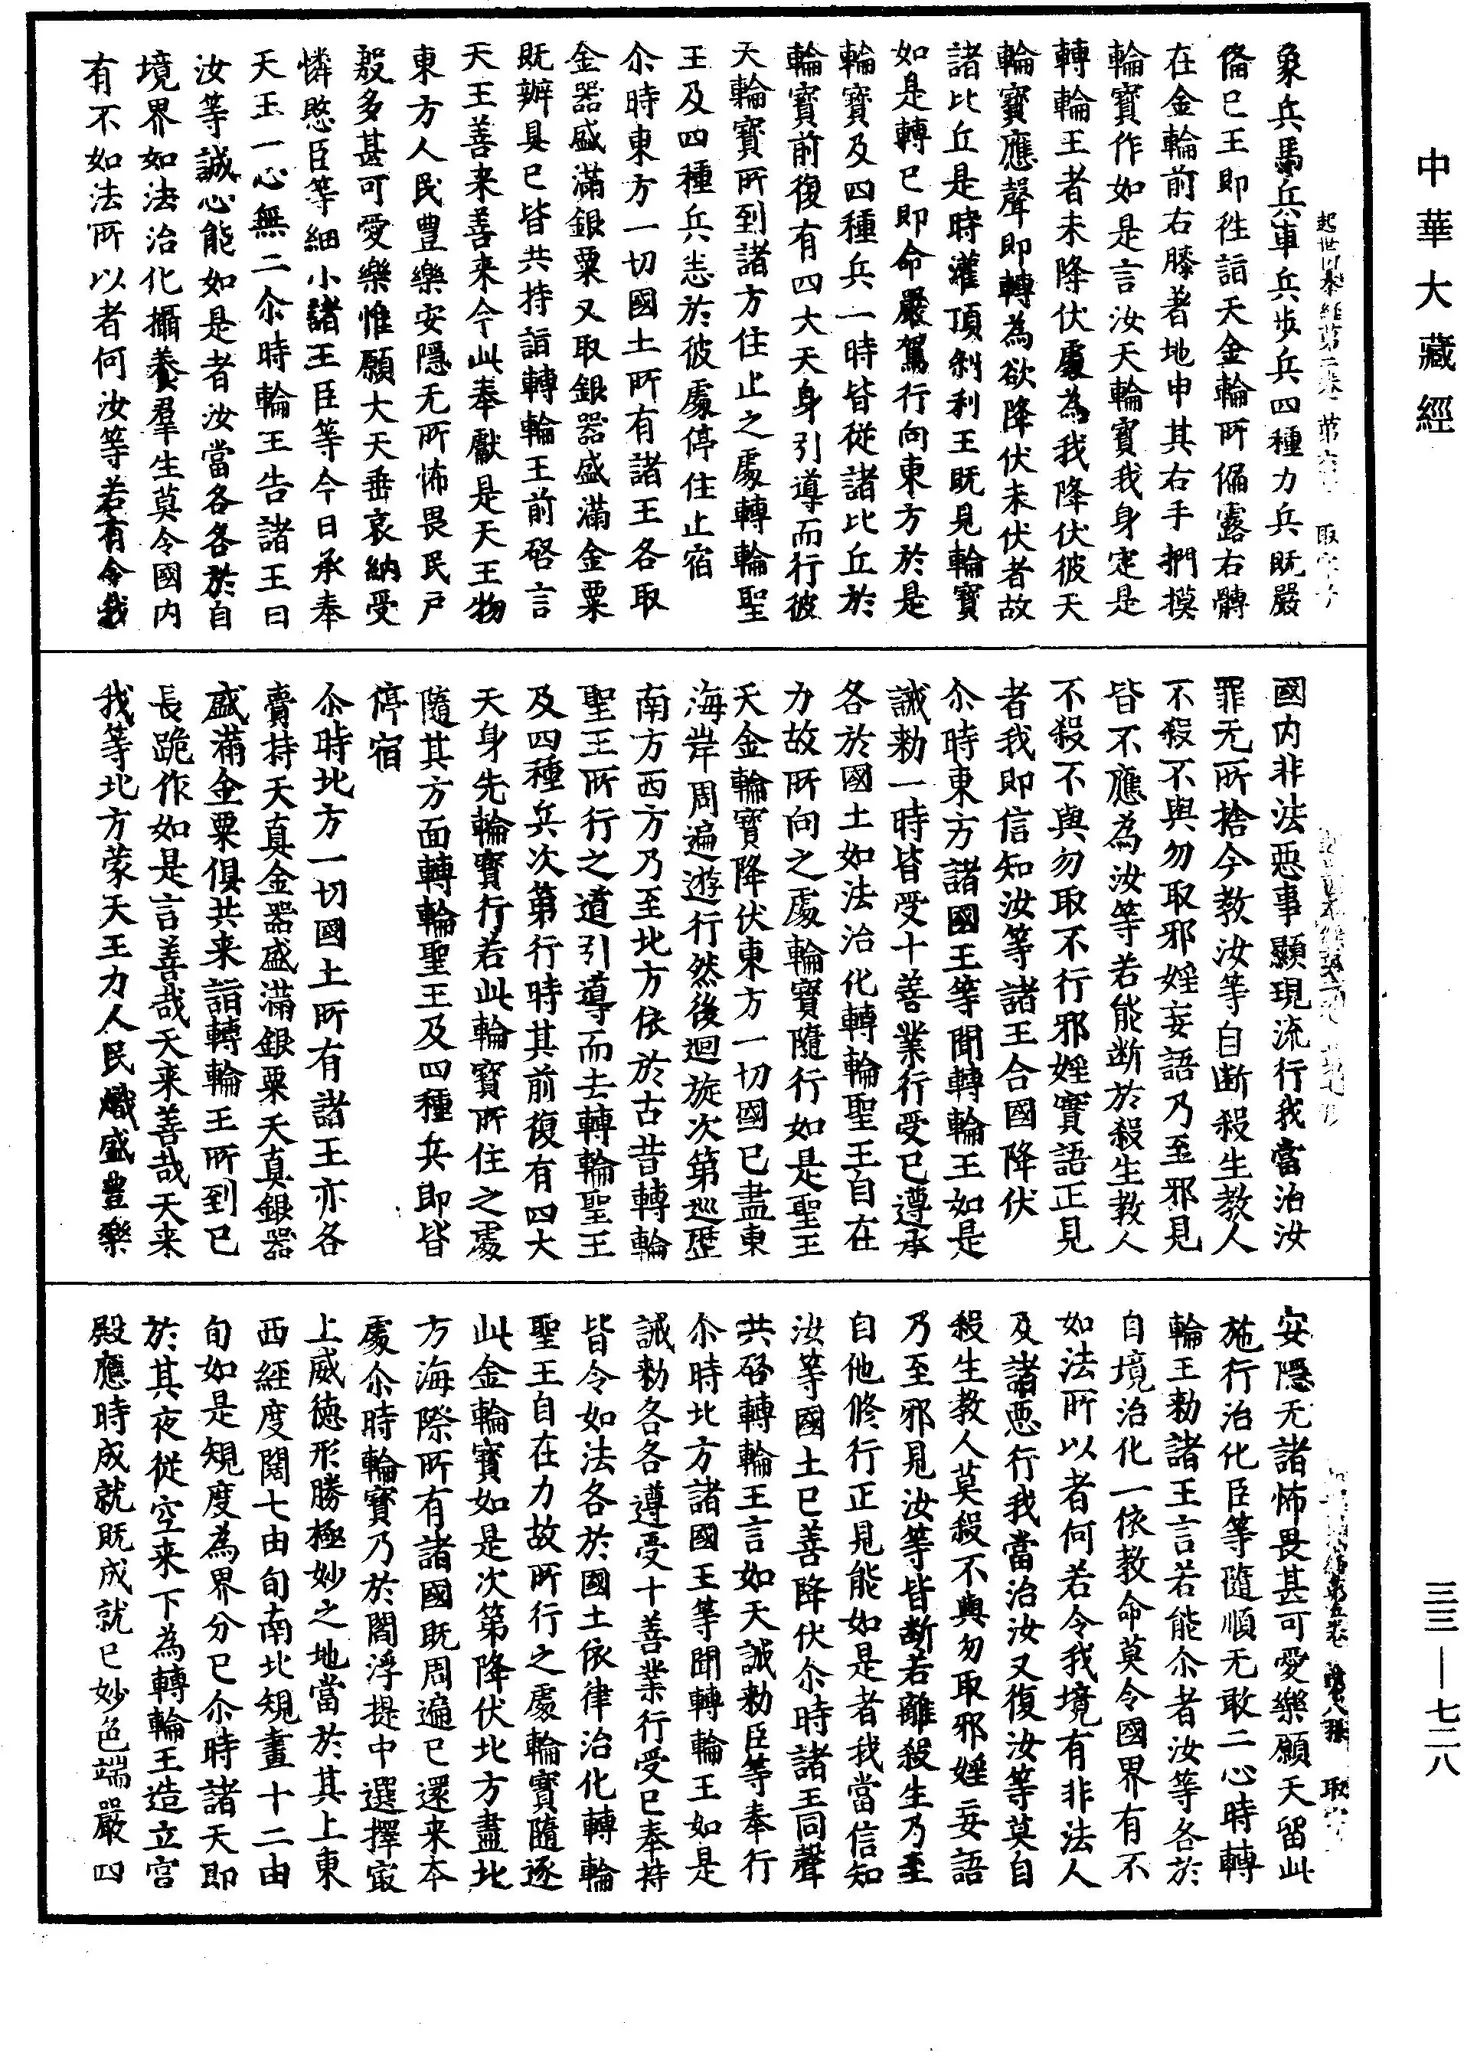 中華大藏經
象兵馬兵車兵步兵四種力兵既嚴
俻已王即往詣天金輪所偏露右髆
在金輪前右膝著地申其右手捫摸
輪寶作如是言汝天輪寶我身定是
轉輪王者未降伏處為我降伏彼天
輪寶應聲即轉為欲降伏未伏者故
諸比丘是時灌頂剎利王既見輪寶
如是轉已即命嚴駕行向東方於是
輪寶及四種兵一時皆從諸比丘於
輪寶前復有四大天身引導而行彼
天輪寶所到諸方住止之處轉輪聖
王及四種兵悉於彼處停住止宿
尒時東方一切國土所有諸王各取
金器盛滿銀粟又取銀器盛滿金粟
既辦具已皆共持詣轉輪王前啓言
天王善来善来今此奉獻是天王物
東方人民豊樂安隱无所怖畏民戶
殷多甚可愛樂惟願大天垂哀納受
憐愍臣等細小諸王臣等今日承奉
天王一心無二尒時輪王告諸王曰
汝等誠心能如是者汝當各各於自
境界如法治化攝養羣生莫令國内
有不如法所以者何汝等若有令我
國内非法惡事顯現流行我當治汝
罪无所捨今教汝等自断殺生教人
不殺不與勿取邪婬妄語乃至邪見
皆不應為汝等若能断於殺生教人
不殺不與勿取不行邪婬實語正見
者我即信知汝等諸王合國降伏
尒時東方諸國王等聞轉輪王如是
誡勅一時皆受十善業行受已遵承
各於國土如法治化轉輪聖王自在
力故所向之處輪寶隨行如是聖王
天金輪寶降伏東方一切國已盡東
海岸周遍遊行然後迴旋次第巡歷
南方西方乃至北方依於古昔轉輪
聖王所行之道引導而去轉輪聖王
及四種兵次第行時其前復有四大
天身先輪寶行若此輪寶所住之處
隨其方面轉輪聖王及四種兵即皆
停宿
尒時北方一切國土所有諸王亦各
賷持天真金器盛滿銀粟天真銀器
盛滿金粟俱共来詣轉輪王所到已
長跪作如是言善哉天来善哉天来
我等北方蒙天王力人民熾盛豊樂
安隱无諸怖畏甚可愛樂願天留此
施行治化臣等隨順无敢二心時轉
輪王勅諸王言若能尒者汝等各於
自境治化一依教命莫令國界有不
如法所以者何若令我境有非法人
及諸惡行我當治汝又復汝等莫自
殺生教人莫殺不與勿取邪婬妄語
乃至邪見汝等皆断若離殺生乃至
自他修行正見能如是者我當信知
汝等國土已善降伏尒時諸王同聲
共啓轉輪王言如天誡勅臣等奉行
尒時北方諸國王等聞轉輪王如是
誡勅各各遵受十善業行受已奉持
皆令如法各於國土依律治化轉輪
聖王自在力故所行之處輪寶隨逐
此金輪寶如是次第降伏北方盡北
方海際所有諸國既周遍已還来本
處尒時輪寶乃於閻浮提中選擇㝡
上威德形勝極妙之地當於其上東
西經度闊七由旬南北規畫十二由
旬如是規度為界分已尒時諸天即
於其夜從空来下為轉輪王造立宫
殿應時成就既成就已妙色端嚴四
三三—七二八